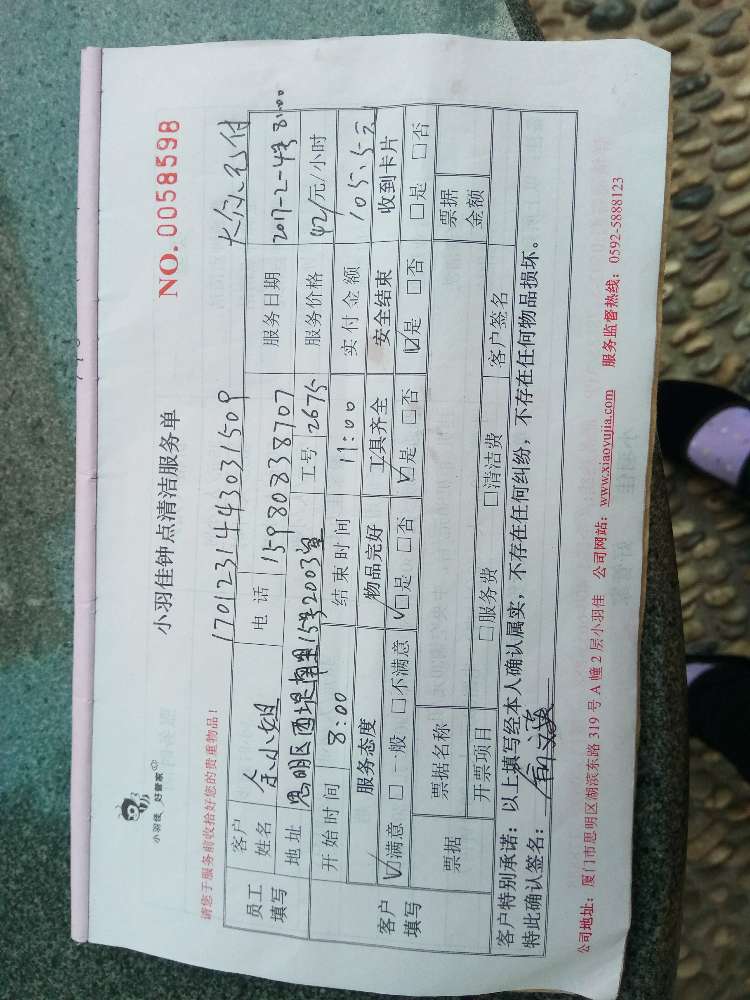 小羽佳 好管家
小羽佳钟点清洁服务单
NO. 0058598
请您于服务前收拾好您的贵重物品！
17012314443031509
员工填写
客户姓名 余小姐 电话 15980838707 服务日期 2017-2-4号 8:00
地址 思明区西堤南里15号2003室 工号 2675 服务价格 42/元/小时
开始时间 8:00 结束时间 11:00 实付金额 105.5元
客户填写
服务态度 物品完好 工具齐全 安全结束 收到卡片
☑满意 □一般 □不满意 ☑是 □否 ☑是 □否 ☑是 □否 □是 □否
票据 票据名称 票据金额
开票项目 □服务费 □清洁费 客户签名
客户特别承诺：以上填写经本人确认属实，不存在任何纠纷，不存在任何物品损坏。
特此确认签名：
公司地址：厦门市思明区湖滨东路 319 号 A 幢 2 层小羽佳 公司网站：www.xiaoyujia.com 服务监督热线：0592-5888123